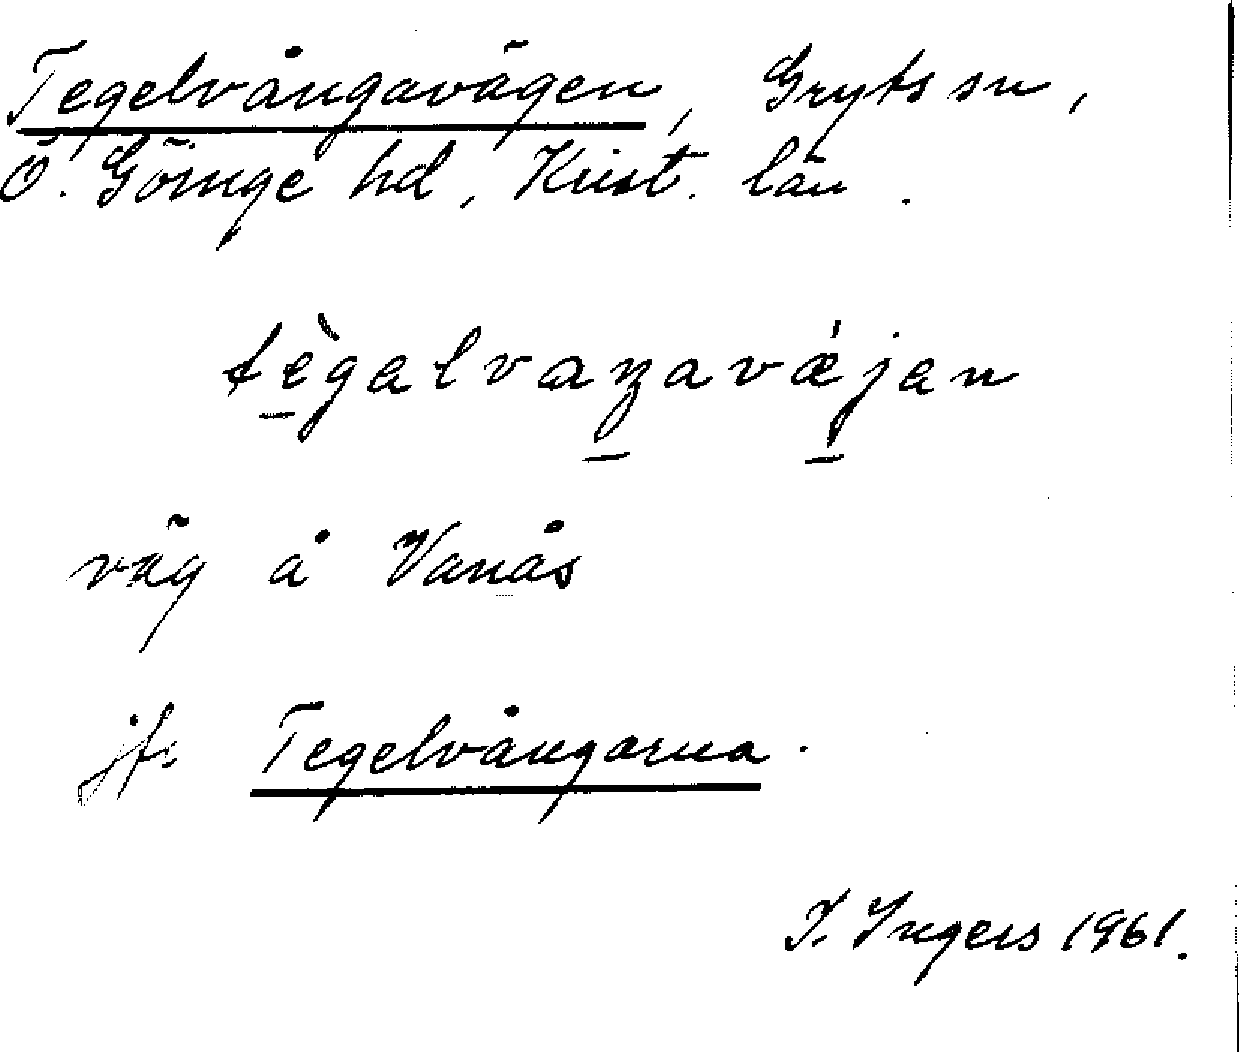 Tegelvångavägen, Gryts sn,
Ö. Göinge hd, Krist. län.
tègəlvaŋavǽjən
väg å Vanås
jfr Tegelvångarna.
I. Ingers 1961.